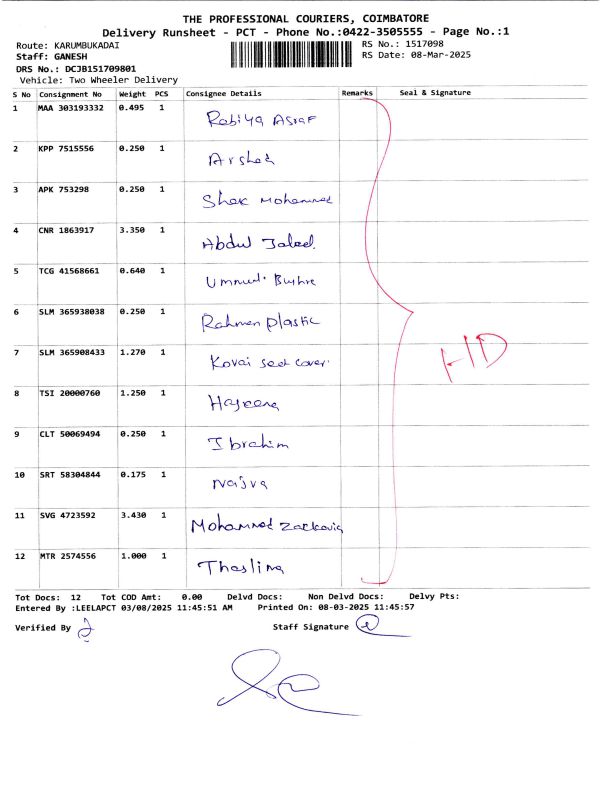 THE PROFESSIONAL COURIERS, COIMBATORE
Delivery Runsheet - PCT - Phone No.:0422-3505555 - Page No.:1
Route: KARUMBUKADAI RS No.: 1517098
Staff: GANESH RS Date: 08-Mar-2025
DRS No.: DCJB151709801
Vehicle: Two Wheeler Delivery
S No Consignment No Weight PCS Consignee Details Remarks Seal & Signature
1 MAA 303193332 0.495 1 Rabiya Asraf
2 KPP 7515556 0.250 1 Arshad
3 APK 753298 0.250 1 Shek Mohammed
4 CNR 1863917 3.350 1 Abdul Jaleel.
5 TCG 41568661 0.640 1
6 SLM 365938038 0.250 1 Rahman plastic
7 SLM 365908433 1.270 1 Kovai seat cover
8 TSI 20000760 1.250 1 Hajeena
9 CLT 50069494 0.250 1 Ibrahim
10 SRT 58304844 0.175 1 najva
11 SVG 4723592 3.430 1 Mohammed
12 MTR 2574556 1.000 1 Thaslima
Tot Docs: 12 Tot COD Amt: 0.00 Delvd Docs: Non Delvd Docs: Delvy Pts:
Entered By :LEELAPCT 03/08/2025 11:45:51 AM Printed On: 08-03-2025 11:45:57
Verified By Staff Signature